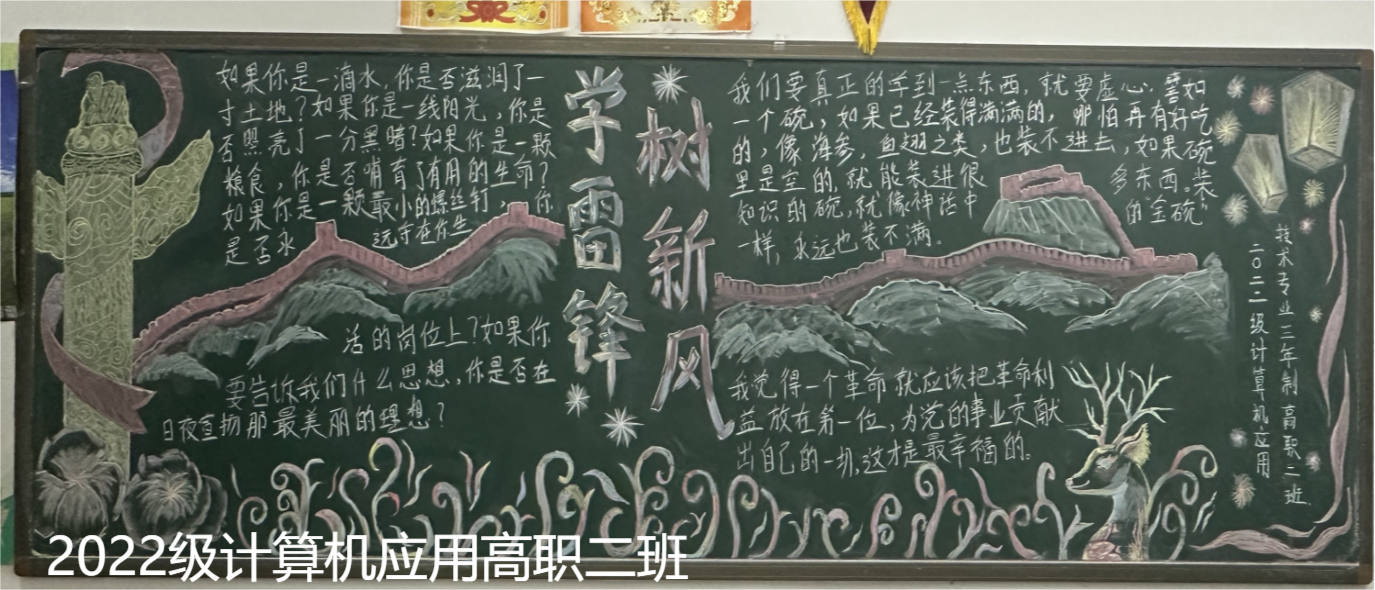 如果你是一滴水，你是否滋润了一
寸土地？如果你是一线阳光，你是
否照亮了一分黑暗？如果你是一颗
粮食，你是否哺育了有用的生命？
如果你是一颗最小的螺丝钉，你
是否永远守在你生
活的岗位上？如果你
要告诉我们什么思想，你是否在
日夜宣扬那最美丽的理想？
学雷锋
树新风
我们要真正的学到一点东西，就要虚心。譬如
一个碗，如果已经装得满满的，哪怕再有好吃
的，像海参，鱼翅之类，也装不进去，如果碗
里是空的，就能装进很多东西。装
知识的碗，就像神话中的金碗
一样，永远也装不满。
我觉得一个革命就应该把革命利
益放在第一位，为党的事业贡献
出自己的一切，这才是最幸福的。
技术专业三年制高职二班
二〇二二级计算机应用
2022级计算机应用高职二班